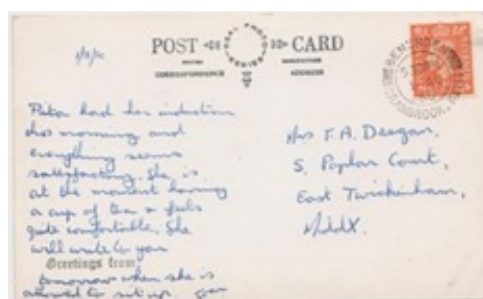 POST CARD
REAL PHOTO
SERIES
CORRESPONDENCE
ADDRESS
BENENDEN
CRANBROOK
had her induction
this morning and
everything seems
satisfactory. She is
at the moment having
a cup of tea & feels
quite comfortable. She
will write to you
Greetings from
tomorrow when she is
allowed to sit up.
Mrs F.A. Deegan,
5, Poplar Court,
East Twickenham,
Middx.